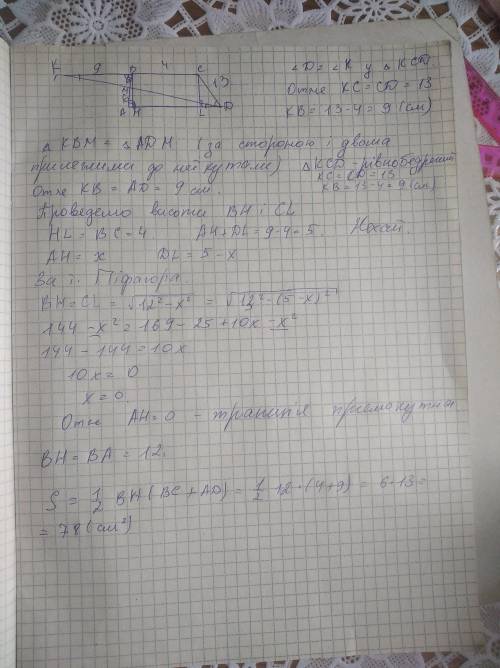 K 9 B 4 C
13
A H L D
∠D = ∠K у △ KCD.
Отже KC = CD = 13
KB = 13-4 = 9 (см)
△ KBM = △ ADM (за стороною і двома
прилеглими до неї кутами)
△ KCD - рівнобедрений
KC = CD = 13
KB = 13-4 = 9 (см)
Отже KB = AD = 9 см.
Проведемо висоти BH і CL
HL = BC = 4 AH + DL = 9-4 = 5. Нехай
AH = x DL = 5 - x
За т. Піфагора.
BH = CL = √12² - x² = √13² - (5 - x)²
144 - x² = 169 - 25 + 10x - x²
144 - 144 = 10x
10x = 0
x = 0.
Отже AH = 0 - трапеція прямокутна.
BH = BA = 12.
S = 1/2 BH (BC + AD) = 1/2 12 · (4+9) = 6 · 13 =
= 78 (см²)